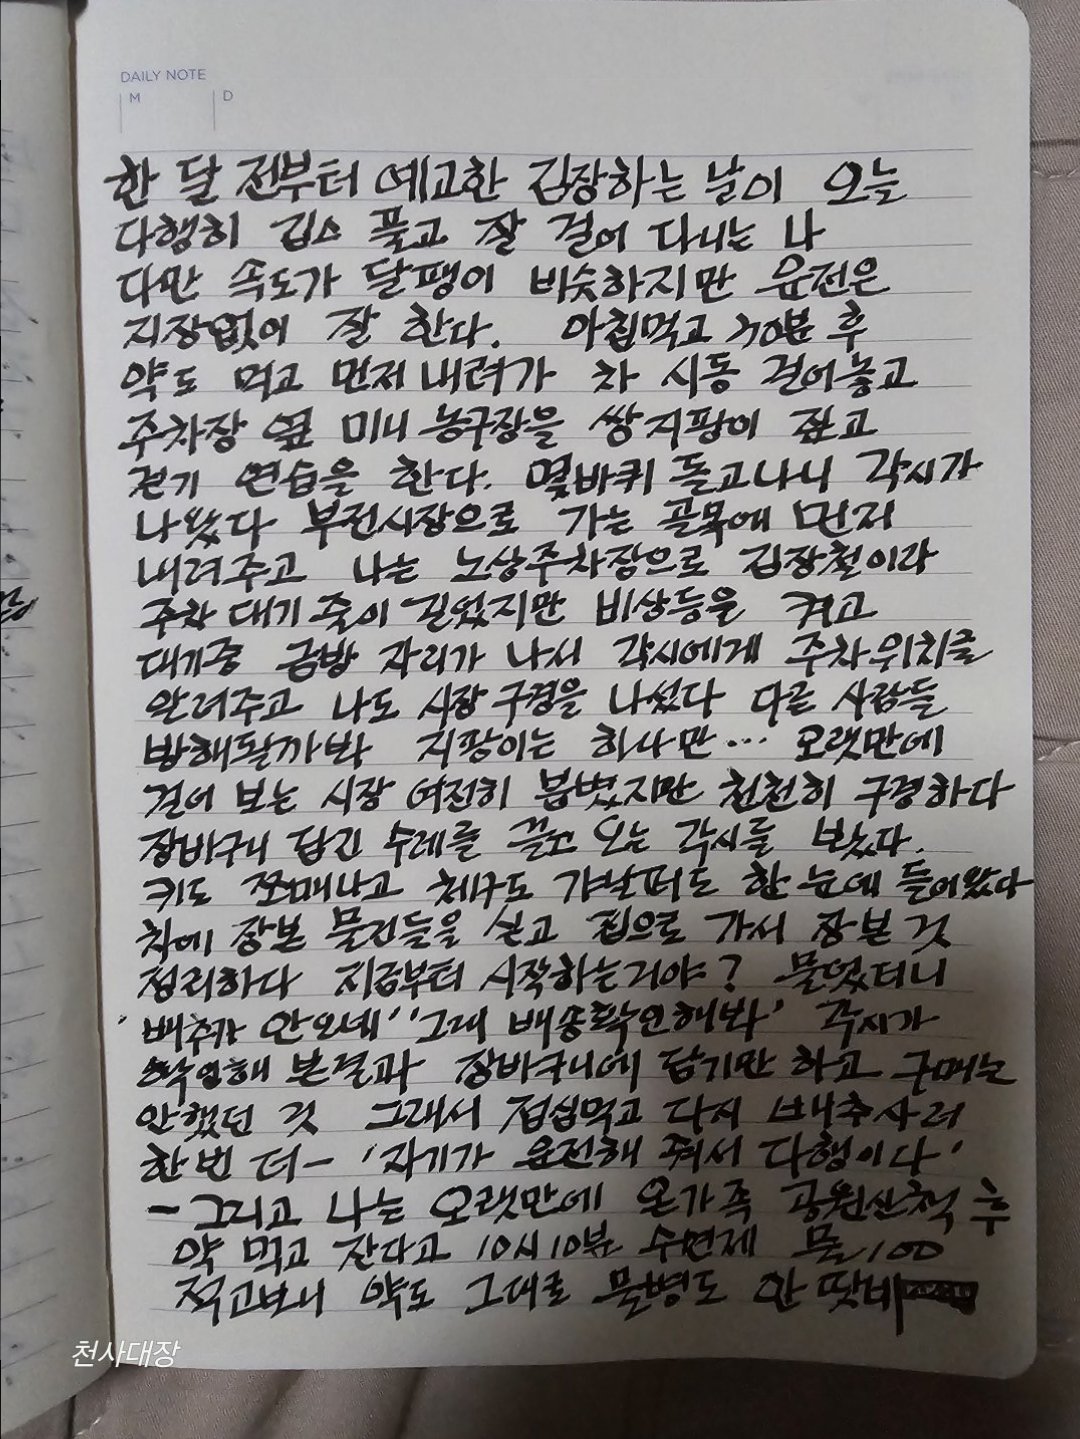 DAILY NOTE
M D
한 달 전부터 예고한 김장하는 날이 오늘
다행히 깁스 풀고 잘 걸어 다니는 나
다만 속도가 달팽이 비슷하지만 운전은
지장없이 잘 한다. 아침먹고 30분 후
약도 먹고 먼저 내려가 차 시동 걸어놓고
주차장 옆 미니 농구장을 쌍지팡이 짚고
걷기 연습을 한다. 몇바퀴 돌고나니 각시가
나왔다 부전시장으로 가는 골목에 먼저
내려주고 나는 노상주차장으로 김장철이라
주차 대기 줄이 길었지만 비상등을 켜고
대기중 금방 자리가 나서 각시에게 주차위치를
알려주고 나도 시장 구경을 나섰다 다른 사람들
방해될까봐 지팡이는 하나만... 오랫만에
걸어 보는 시장 여전히 붐볐지만 천천히 구경하다
장바구니 담긴 수레를 끌고 오는 각시를 봤다.
키도 쪼매나고 체구도 가날퍼도 한 눈에 들어왔다
차에 장본 물건들을 싣고 집으로 가서 장본 것
정리하다 지금부터 시작하는거야? 물었더니
'배추가 안오네' '그래 배송확인해봐' 각시가
확인해 본결과 장바구니에 담기만 하고 구매는
안했던 것 그래서 점심먹고 다시 배추사러
한번 더- '자기가 운전해 줘서 다행이다'
- 그리고 나는 오랫만에 온가족 공원산책 후
약 먹고 잔다고 10시10분 수면제 물100
적고보니 약도 그대로 물병도 안 땃네
천사대장